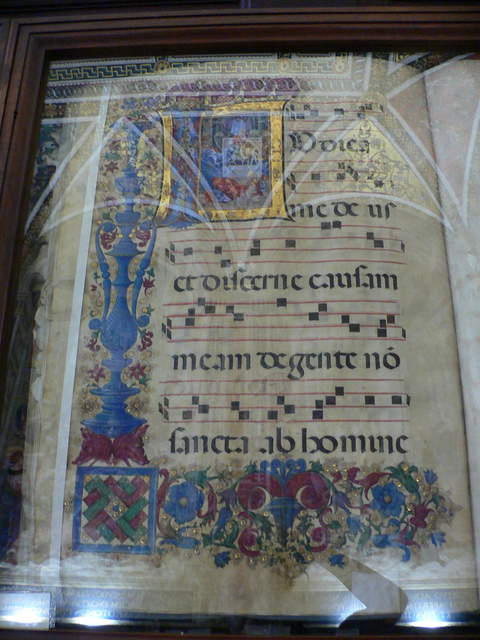 Vdica
me de us
et discerne causam
meam de gente nō
sancta ab homine